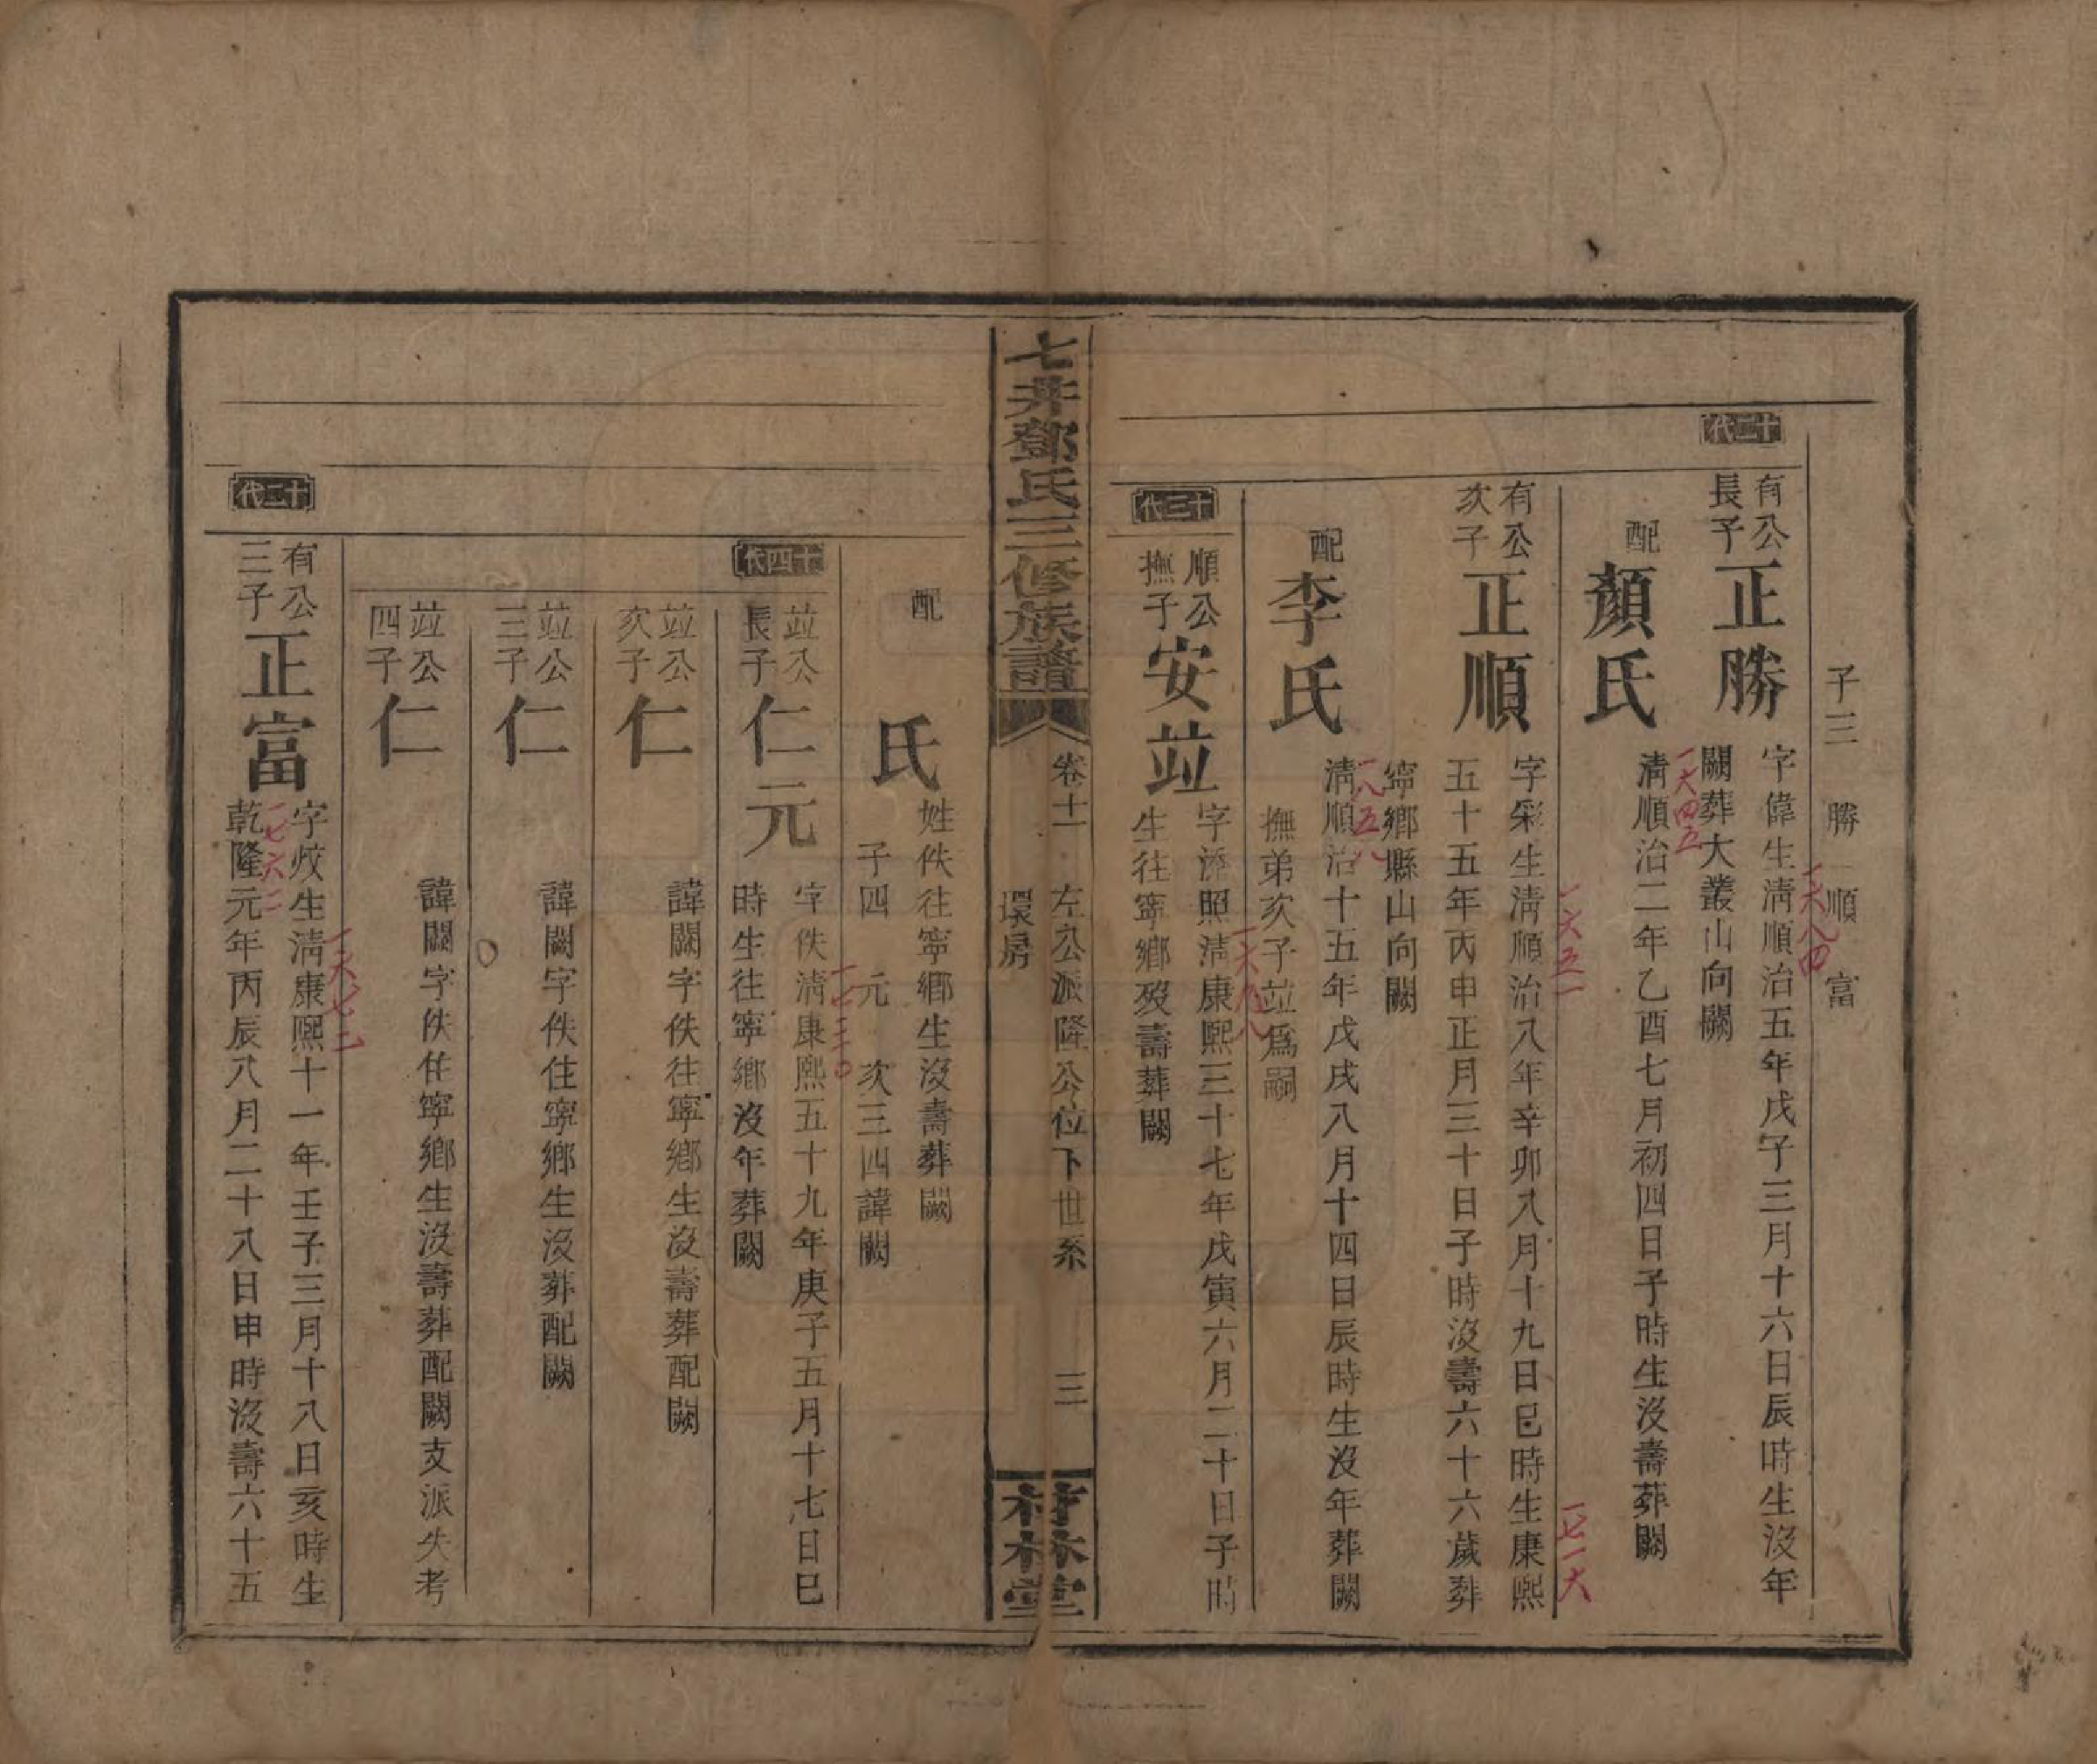 子三　勝　順　富
十二代
有公長子
正勝
字偉生清順治五年戊子三月十六日辰時生沒年
闕葬大叢山向闕
一六八四
配
顏氏
清順治二年乙酉七月初四日子時生沒壽葬闕
一六四五
有公次子
正順
字彩生清順治八年辛卯八月十九日巳時生康熙
五十五年丙申正月三十日子時沒壽六十六歲葬
寧鄉縣山向闕
一六五一
一七一六
配
李氏
清順治十五年戊戌八月十四日辰時生沒年葬闕
撫弟次子竝爲嗣
一八五八
十三代
順公撫子
安竝
字添照清康熙三十七年戊寅六月二十日子時
生往寧鄉歿壽葬闕
一六九八
七井鄧氏三修族譜
卷十一　左公派隆公位下世系　三
環房
竹林堂
配
氏
姓佚往寧鄉生沒壽葬闕
子四　元　次三四諱闕
十四代
竝公長子
仁元
字佚清康熙五十九年庚子五月十七日巳
時生往寧鄉沒年葬闕
一七二〇
竝公次子
仁
諱闕字佚往寧鄉生沒壽葬配闕
竝公三子
仁
諱闕字佚住寧鄉生沒葬配闕
竝公四子
仁
諱闕字佚住寧鄉生沒壽葬配闕支派失考
十二代
有公三子
正富
字姣生清康熙十一年壬子三月十八日亥時生
乾隆元年丙辰八月二十八日申時沒壽六十五
一六七二